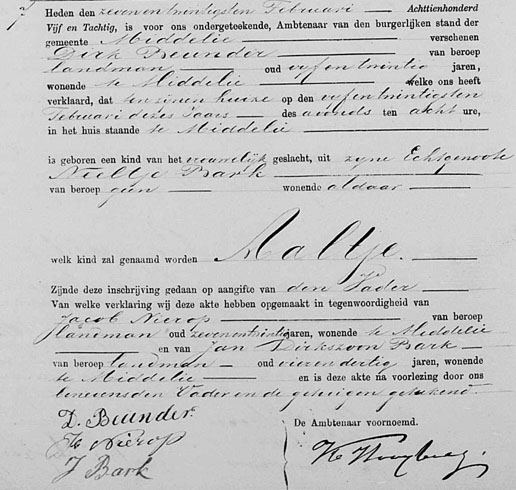 Heden den zevenentwintigsten Februari Achttienhonderd
Vijf en Tachtig, is voor ons ondergeteekende, Ambtenaar van den burgerlijken stand der
gemeente Middelie verschenen
Dirk Beunder van beroep
landman oud vyfentwintig jaren,
wonende te Middelie welke ons heeft
verklaard, dat ten zinen huize op den vyfentwintigsten
Februari dezes Jaars des avonds ten acht ure,
in het huis staande te Middelie
is geboren een kind van het vrouwelijk geslacht, uit zyne Echtgenoote
Neeltje Bark
van beroep geen wonende aldaar
welk kind zal genaamd worden Aaltje.
Zijnde deze inschrijving gedaan op aangifte van den Vader
Van welke verklaring wij deze akte hebben opgemaakt in tegenwoordigheid van
Jacob Nierop van beroep
landman oud zevenentwintig jaren, wonende te Middelie
en van Jan Dirkszoon Bark
van beroep landman oud vierendertig jaren, wonende
te Middelie en is deze akte na voorlezing door ons
benevensden Vader en de getuigen geteekend.
D. Beunder
Nierop
J Bark
De Ambtenaar voornoemd.